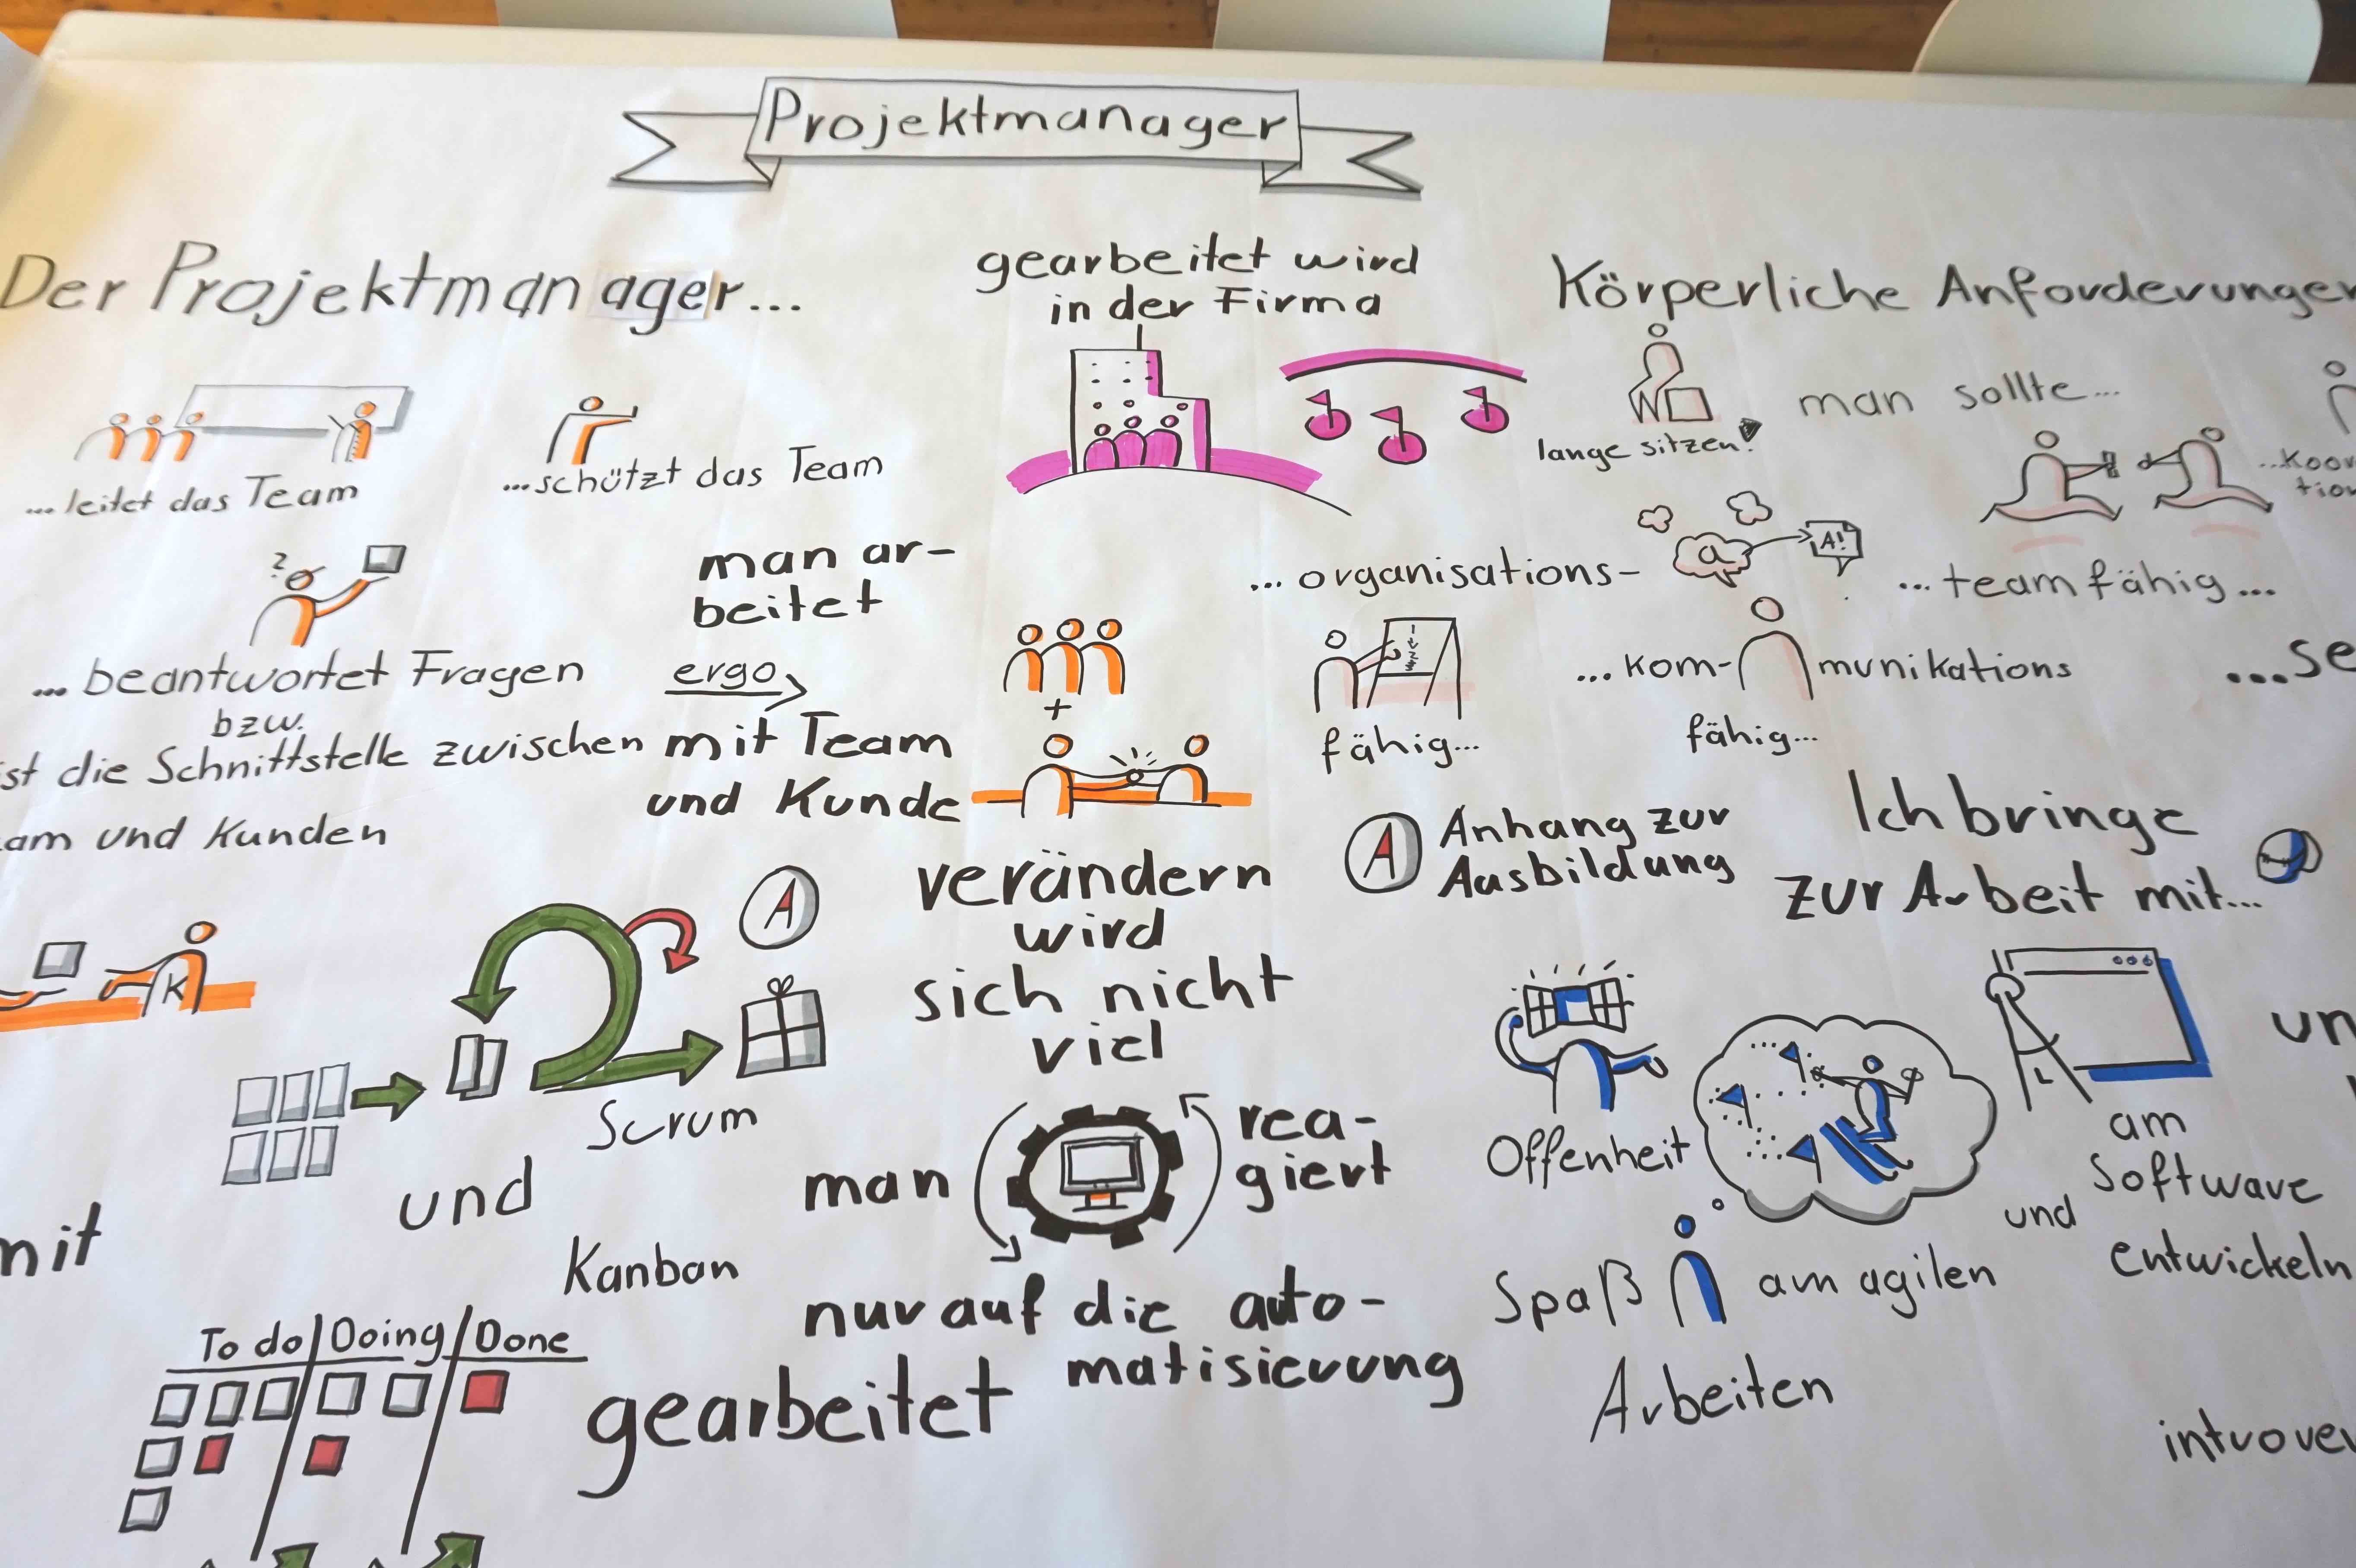 Projektmanager
Der Projektmanager...
...leitet das Team
...schützt das Team
?
... beantwortet Fragen
bzw.
ist die Schnittstelle zwischen
am und Kunden
K
man ar-
beitet
ergo
mit Team
und Kunde
+
gearbeitet wird
in der Firma
Körperliche Anforderungen
lange sitzen!
man sollte...
... organisations-
fähig...
a
A!
...teamfähig...
...Koor
tion
...kom-munikations
fähig...
...se
A Anhang zur
Ausbildung
A
Scrum
und
Kanban
mit
To do Doing Done
gearbeitet
verändern
wird
sich nicht
viel
man rea-
giert
nur auf die auto-
matisierung
Ich bringe
zur Arbeit mit...
Offenheit
Spaß am agilen
Arbeiten
und
am
Software
entwickeln
un
introver